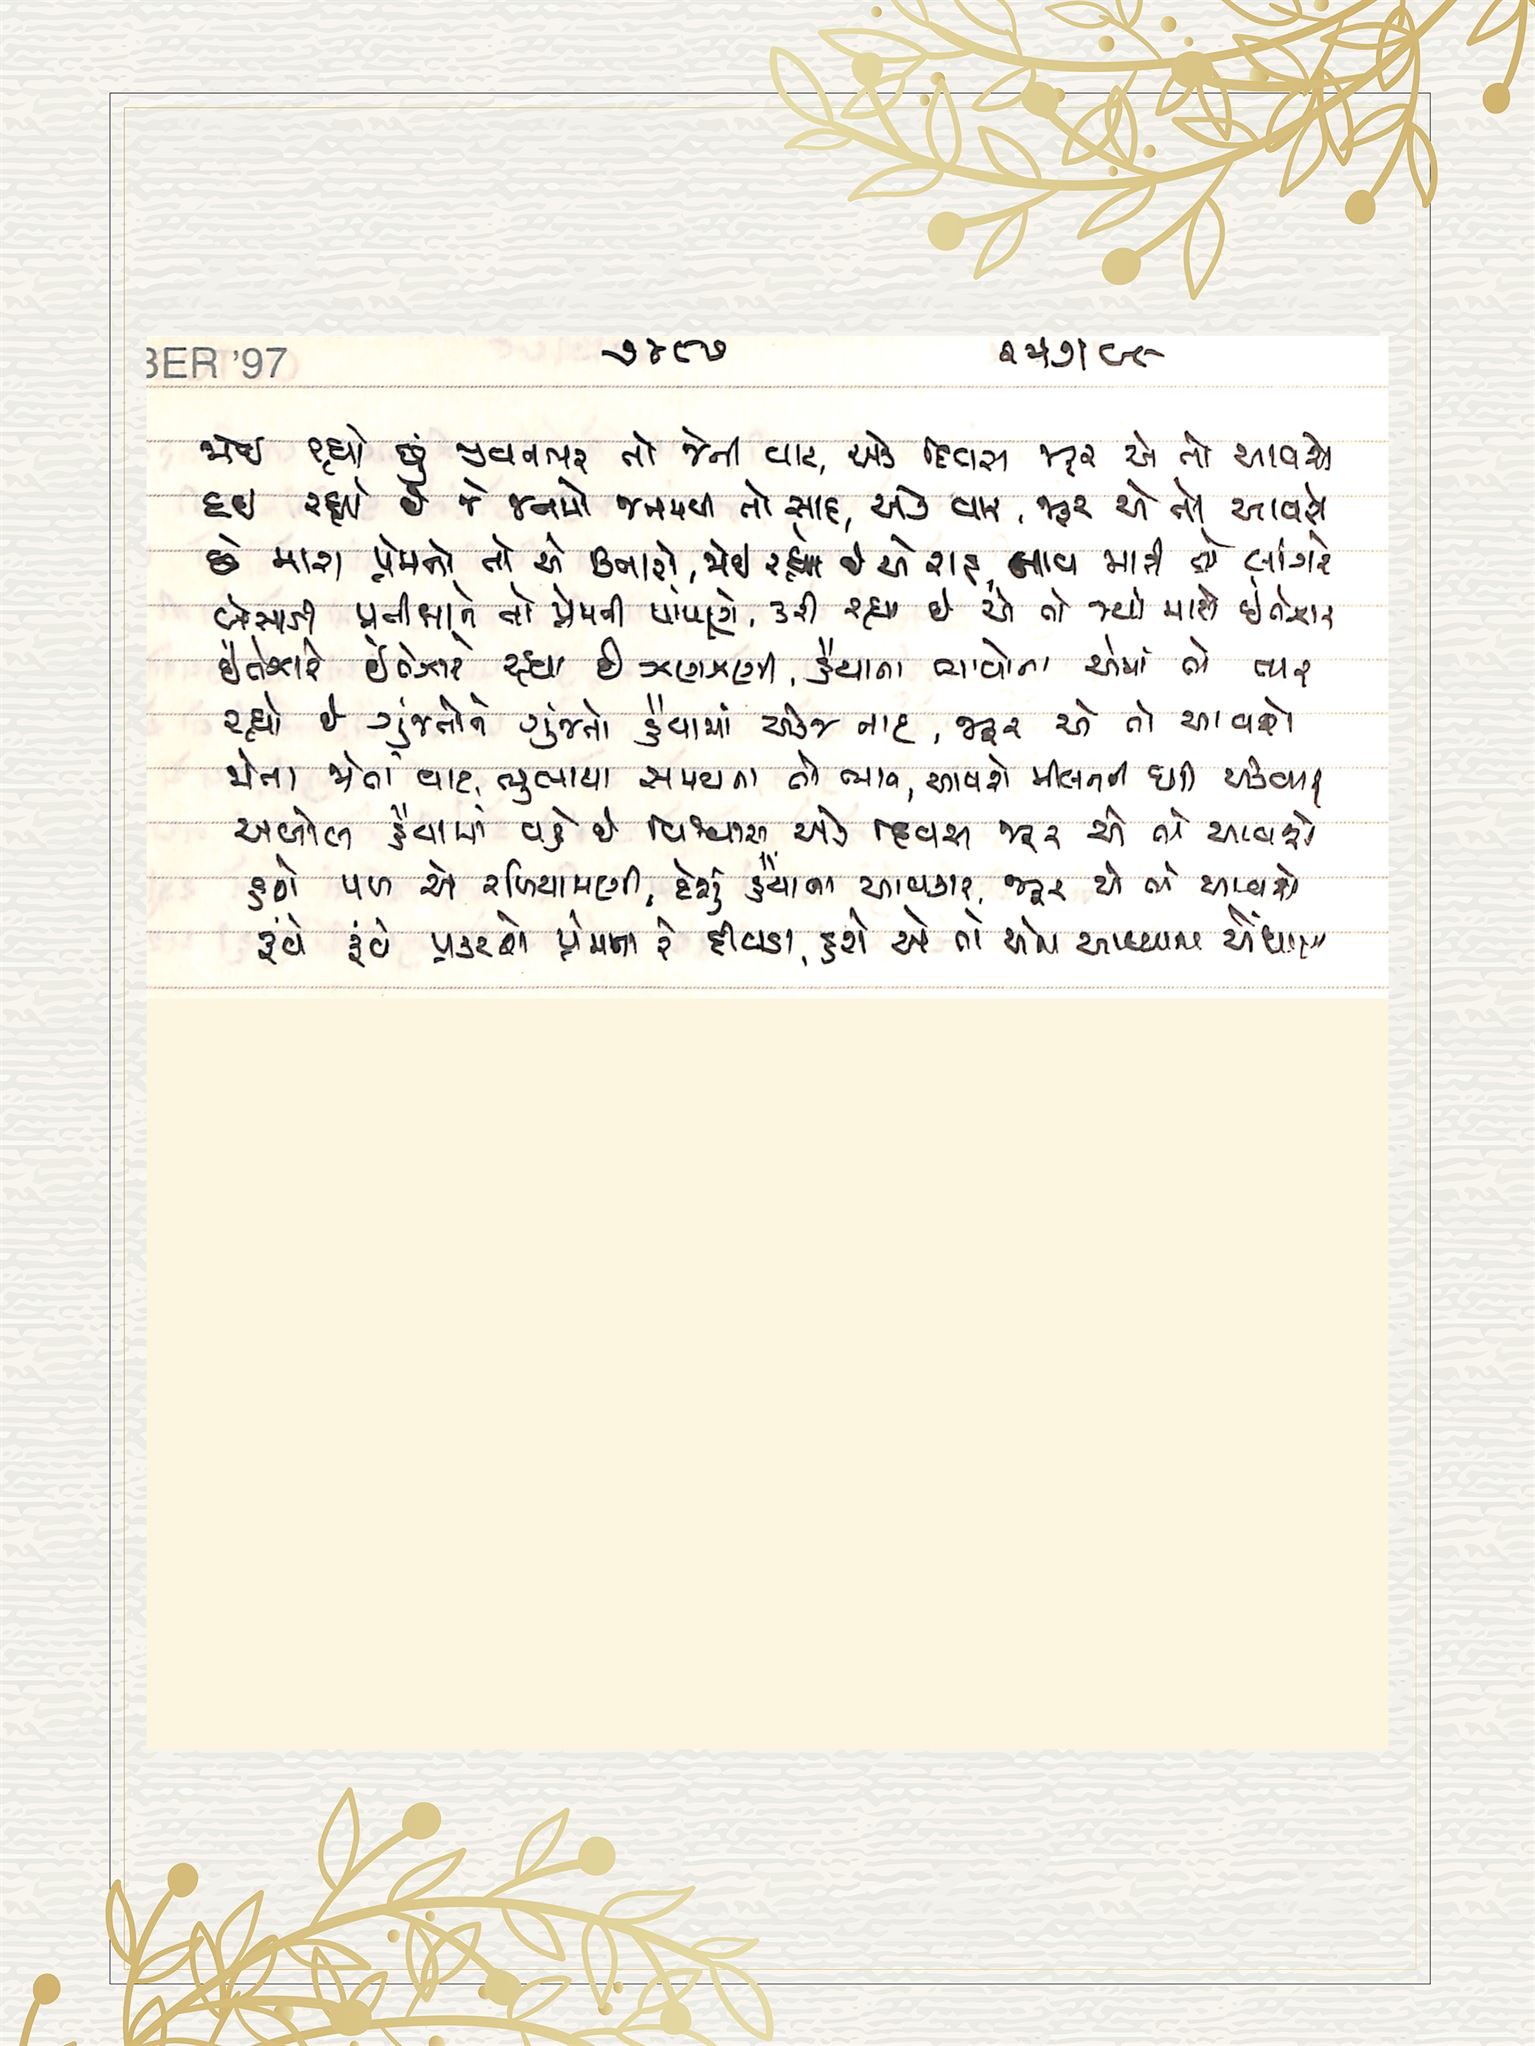 BER '97
જોઈ રહ્યો છું જીવનભર તો જેની વાટ, એક દિવસ જરૂર એ તો આવશે
દઈ રહ્યો છે જે જનમો જનમથી તો સાદ, એક વાર, જરૂર એ તો આવશે
છે મારા પ્રેમનો તો એ કિનારો, જોઈ રહ્યો છે એ રાહ, નાવ મારી તો લાંગરે
બેસાડી પ્રતીક્ષાને તો પ્રેમની પાંપણે, કરી રહ્યા છે એ તો જ્યાં મારો ઇંતેઝાર
ઇંતેઝારે ઇંતેઝારે રહ્યા છે ઝણઝણી, હૈયાના ભાવોના એમાં તો તાર
રહ્યો છે ગુંજતોને ગુંજતો હૈયામાં એકજ નાદ, જરૂર એ તો આવશે
જોતા જોતાં વાટ, ભુલાયા સમયના તો ભાવ, આવશે મીલનની ઘડી એકવાર
અબોલ હૈયામાં વહે છે વિશ્વાસ એક દિવસ જરૂર એ તો આવશે
હશે પળ એ રળિયામણી, દેશું હૈયાના આવકાર, જરૂર એ તો આવશે
રૂંવે રૂંવે પ્રકટશે પ્રેમના રે દીવડા, હશે એ તો